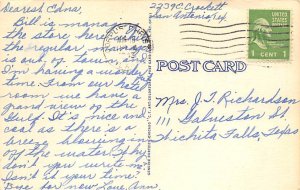 Dearest Edna,
Bill is managing
the store here while
the regular manager
is out of town, and
I'm having a wonderful
time. From our hotel
room we have a
grand view of the
Gulf. It's nice and
cool as there's a
breeze blowing in
off the water. Why
don't you write me?
Isn't it your time?
Bye for now Love, Ann
2239 C. Crockett
San Antonio, Tex.
1¢
1 CENT 1
POST CARD
Mrs. J. T. Richardson
111 Galveston St.
Wichita Falls, Texas